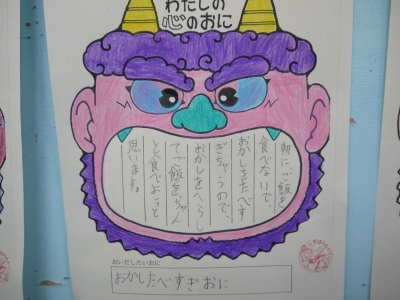 わたしの
心のおに
朝に、ご飯を
食べないで、
おかしをたべす
ぎちゃうので、
おかしをへらし
てご飯を、ちゃん
と食べようと
思います。
おいだしたいおに
おかしたべすぎおに